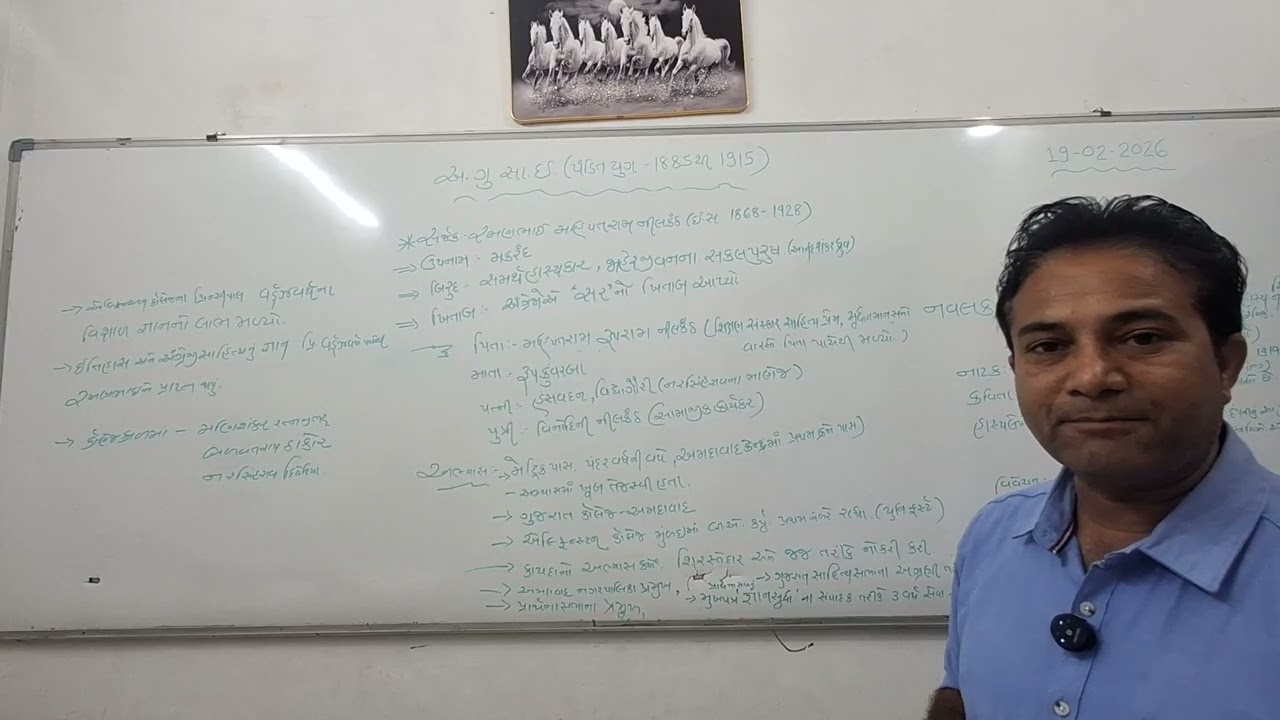 અ.ગુ.સા.ઈ. (પંડિતયુગ - 1885થી 1915)
19-02-2026
* સર્જક:- રમણભાઈ મહીપતરામ નીલકંઠ (ઈ.સ 1868-1928)
⇒ ઉપનામ:- મકરંદ
⇒ બિરુદ:- સમર્થ હાસ્યકાર, જાહેરજીવનના સકલપુરુષ (આનંદશંકર ધ્રુવ)
⇒ ખિતાબ:- અંગ્રેજોએ 'સર'નો ખિતાબ આપ્યો
પિતા:- મહીપતરામ રૂપરામ નીલકંઠ (શિક્ષણ સંસ્કાર સાહિત્ય પ્રેમ, સુધારા
વારસો પિતા પાસેથી મળ્યો.)
માતા:- રૂપકુંવરબા
પત્ની:- હંસવદન, વિદ્યાગૌરી (નરસિંહરાવના ભાણેજ)
પુત્રી:- વિનોદિની નીલકંઠ (સામાજીક કાર્યકર)
અભ્યાસ:- → મેટ્રિક પાસ પંદર વર્ષની વયે, અમદાવાદ કેન્દ્રમાં પ્રથમ ક્રમે પાસ)
- અભ્યાસમાં ખૂબ તેજસ્વી હતા.
→ ગુજરાત કોલેજ - અમદાવાદ
→ એલ્ફિન્સ્ટન કોલેજ મુંબઈમાં બી.એ. કર્યું. પ્રથમ નંબરે રહ્યા. (યુનિ ફર્સ્ટ)
→ કાયદાનો અભ્યાસ કર્યો, શિરસ્તેદાર અને જજ તરીકે નોકરી કરી
→ અમદાવાદ નગરપાલિકા પ્રમુખ, → ગુજરાત સાહિત્યસભાના અગ્રણી
→ પ્રાર્થનાસભાના પ્રમુખ, → મુખપત્ર 'જ્ઞાનસુધા'ના સંપાદક તરીકે 3 વર્ષ સેવા
→ એલ્ફિન્સ્ટન કોલેજના પ્રિન્સીપાલ વર્ડ્ઝવર્થના
વિશાળ જ્ઞાનનો લાભ મળ્યો.
→ ઈતિહાસ અને અંગ્રેજી સાહિત્યનું જ્ઞાન પ્રિ. વર્ડ્ઝવર્થ પાસેથી
રમણભાઈને પ્રાપ્ત થયું.
→ કોલેજકાળમાં - મણિશંકર રત્નજી ભટ્ટ
બળવંતરાય ઠાકોર
નરસિંહરાવ દિવેટિયા
નવલક
નાટક:
કવિતા
હાસ્યલે
વિવેચન:-